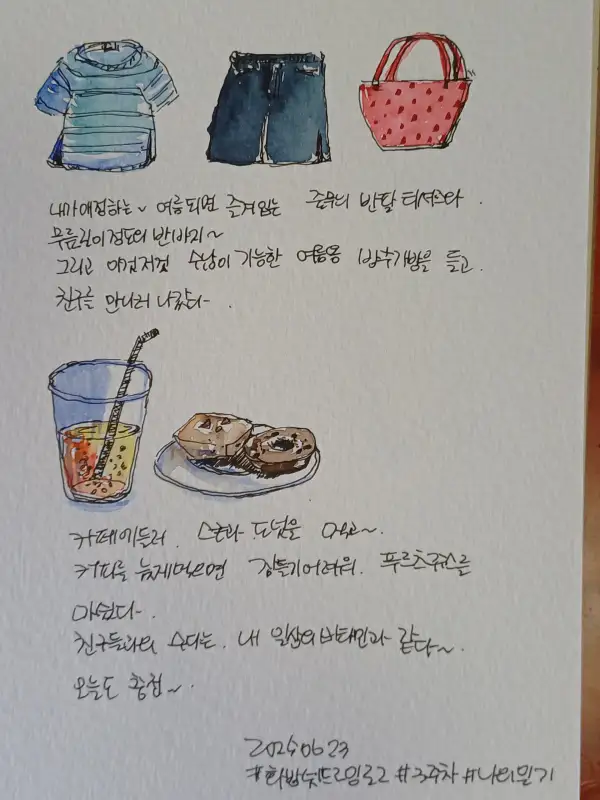 내가 애정하는~ 여름되면 즐겨입는 줄무늬 반팔 티셔츠와.
무릎길이 정도의 반바지~
그리고 이것저것 수납이 가능한 여름용 방수가방을 들고.
친구를 만나러 나갔다-.
카페에 들러. 스콘과 도넛을 먹고~.
커피를 늦게 먹으면 잠들기 어려워. 푸르츠쥬스를
마셨다-.
친구들과의 수다는. 내 일상의 비타민과 같다~.
오늘도 충전~.
20240623
#3주차 #나의일기